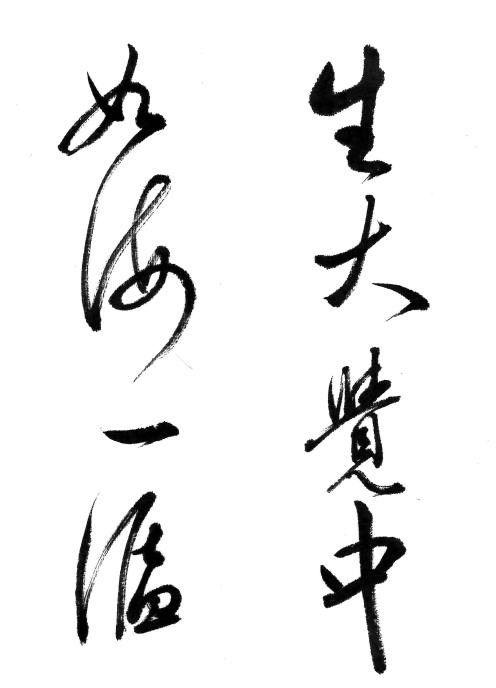 生大覺中
如海一漚